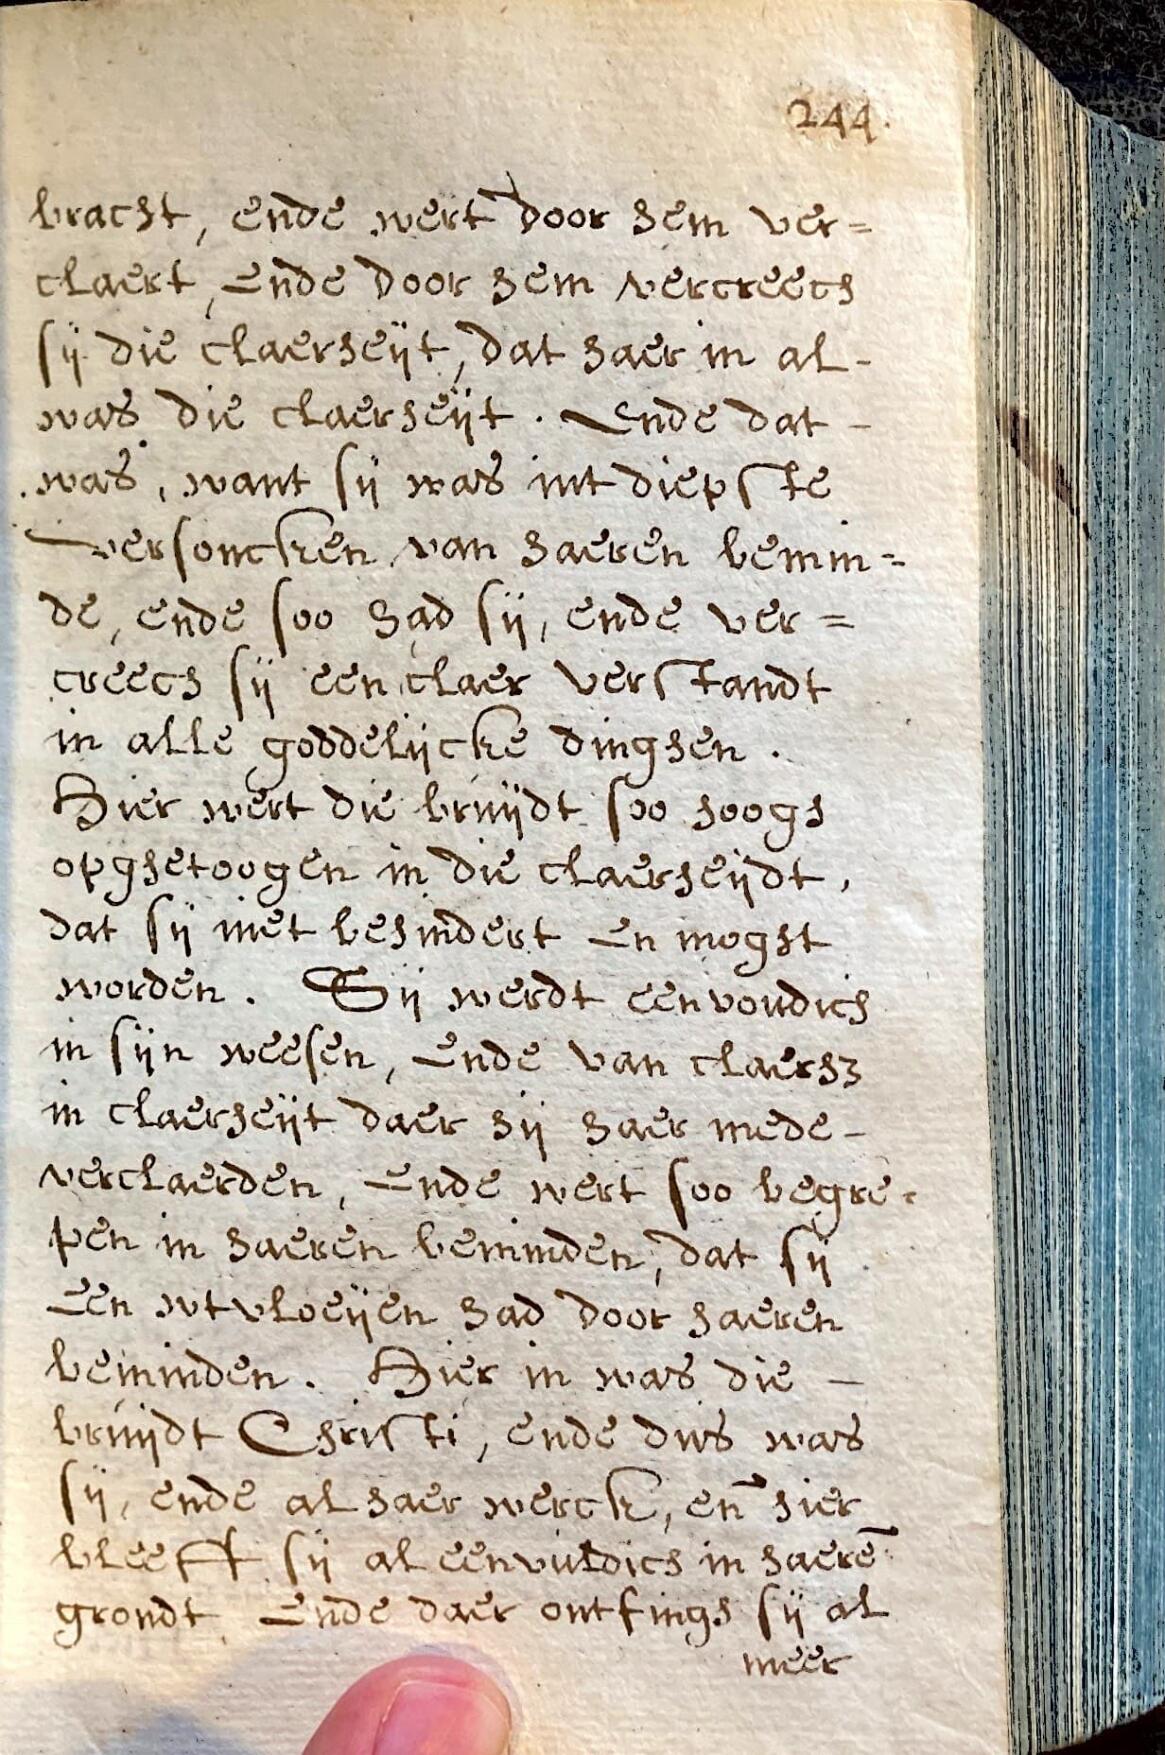 244.
bracht, ende wert door hem ver=
claert, ende door hem vercreech
sij die claerheijt, dat haer in al-
was die claerheijt. Ende dat -
was, want sij was int diepste
versoncken van haeren bemin=
de, ende soo had sij, ende ver=
creech sij een claer verstandt
in alle goddelijcke dinghen.
Hier wert die bruijdt soo hoogh
opghetoogen in die claerheijdt,
dat sij niet behindert en moght
worden. Sij werdt eenvoudich
in sijn weesen, ende van claerhz
in claerheijt daer sij haer mede-
verclaerden, ende wert soo begre=
pen in haeren beminden, dat sij
een wtvloeijen had door haeren
beminden. Hier in was die -
bruijdt Christi, ende dus was
sij, ende al haer werck, en̄ hier
bleeft sij al eenvuldich in haerē
grondt, Ende daer ontfingh sij al
meer